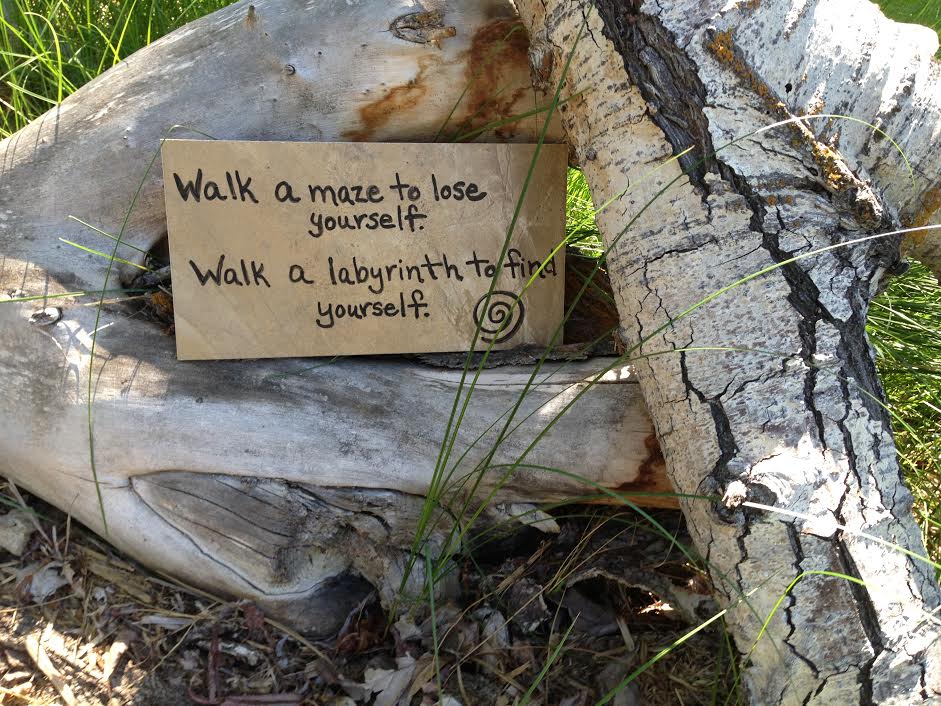 Walk a maze to lose
yourself.
Walk a labyrinth to find
yourself.